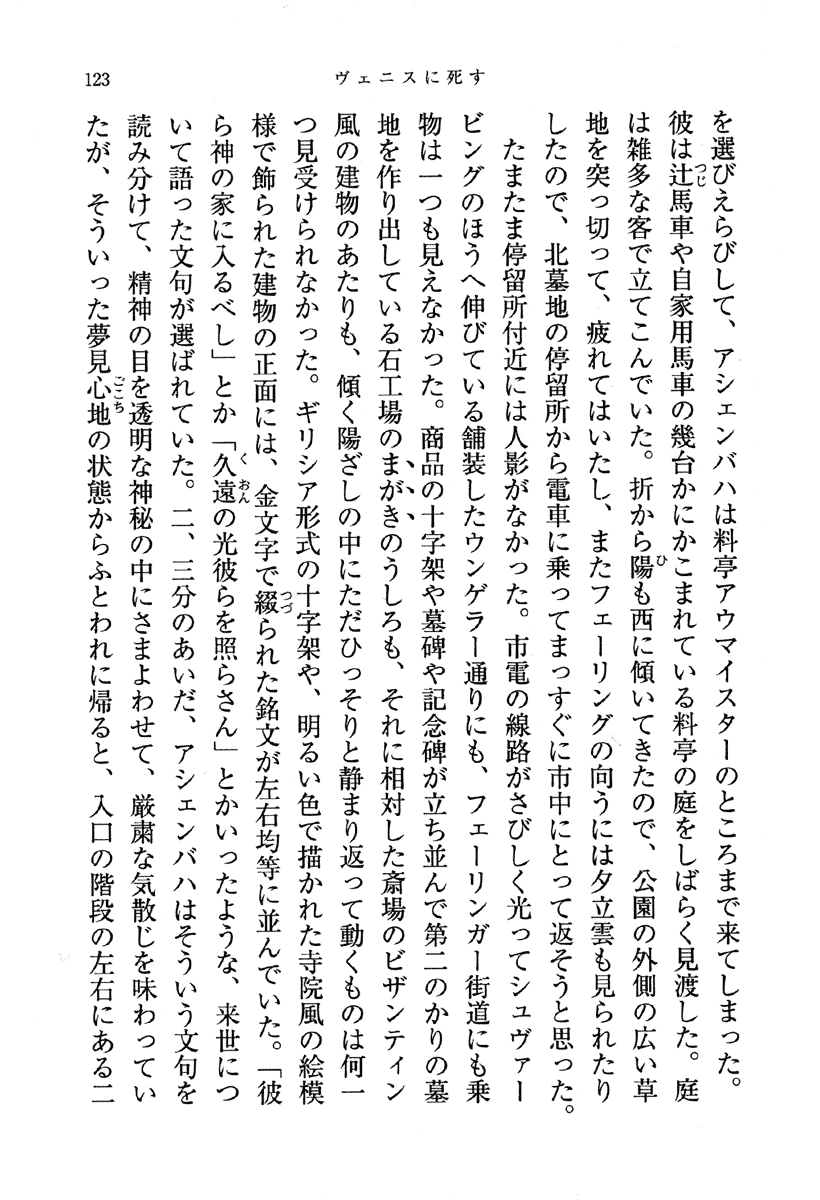 123
ヴェニスに死す
を選びえらびして、アシェンバハは料亭アウマイスターのところまで来てしまった。
彼は辻馬車や自家用馬車の幾台かにかこまれている料亭の庭をしばらく見渡した。庭
は雑多な客で立てこんでいた。折から陽も西に傾いてきたので、公園の外側の広い草
地を突っ切って、疲れてはいたし、またフェーリングの向うには夕立雲も見られたり
したので、北墓地の停留所から電車に乗ってまっすぐに市中にとって返そうと思った。
たまたま停留所付近には人影がなかった。市電の線路がさびしく光ってシュヴァー
ビングのほうへ伸びている舗装したウンゲラー通りにも、フェーリンガー街道にも乗
物は一つも見えなかった。商品の十字架や墓碑や記念碑が立ち並んで第二のかりの墓
地を作り出している石工場のまがきのうしろも、それに相対した斎場のビザンティン
風の建物のあたりも、傾く陽ざしの中にただひっそりと静まり返って動くものは何一
つ見受けられなかった。ギリシア形式の十字架や、明るい色で描かれた寺院風の絵模
様で飾られた建物の正面には、金文字で綴られた銘文が左右均等に並んでいた。「彼
ら神の家に入るべし」とか「久遠の光彼らを照らさん」とかいったような、来世につ
いて語った文句が選ばれていた。二、三分のあいだ、アシェンバハはそういう文句を
読み分けて、精神の目を透明な神秘の中にさまよわせて、厳粛な気散じを味わってい
たが、そういった夢見心地の状態からふとわれに帰ると、入口の階段の左右にある二